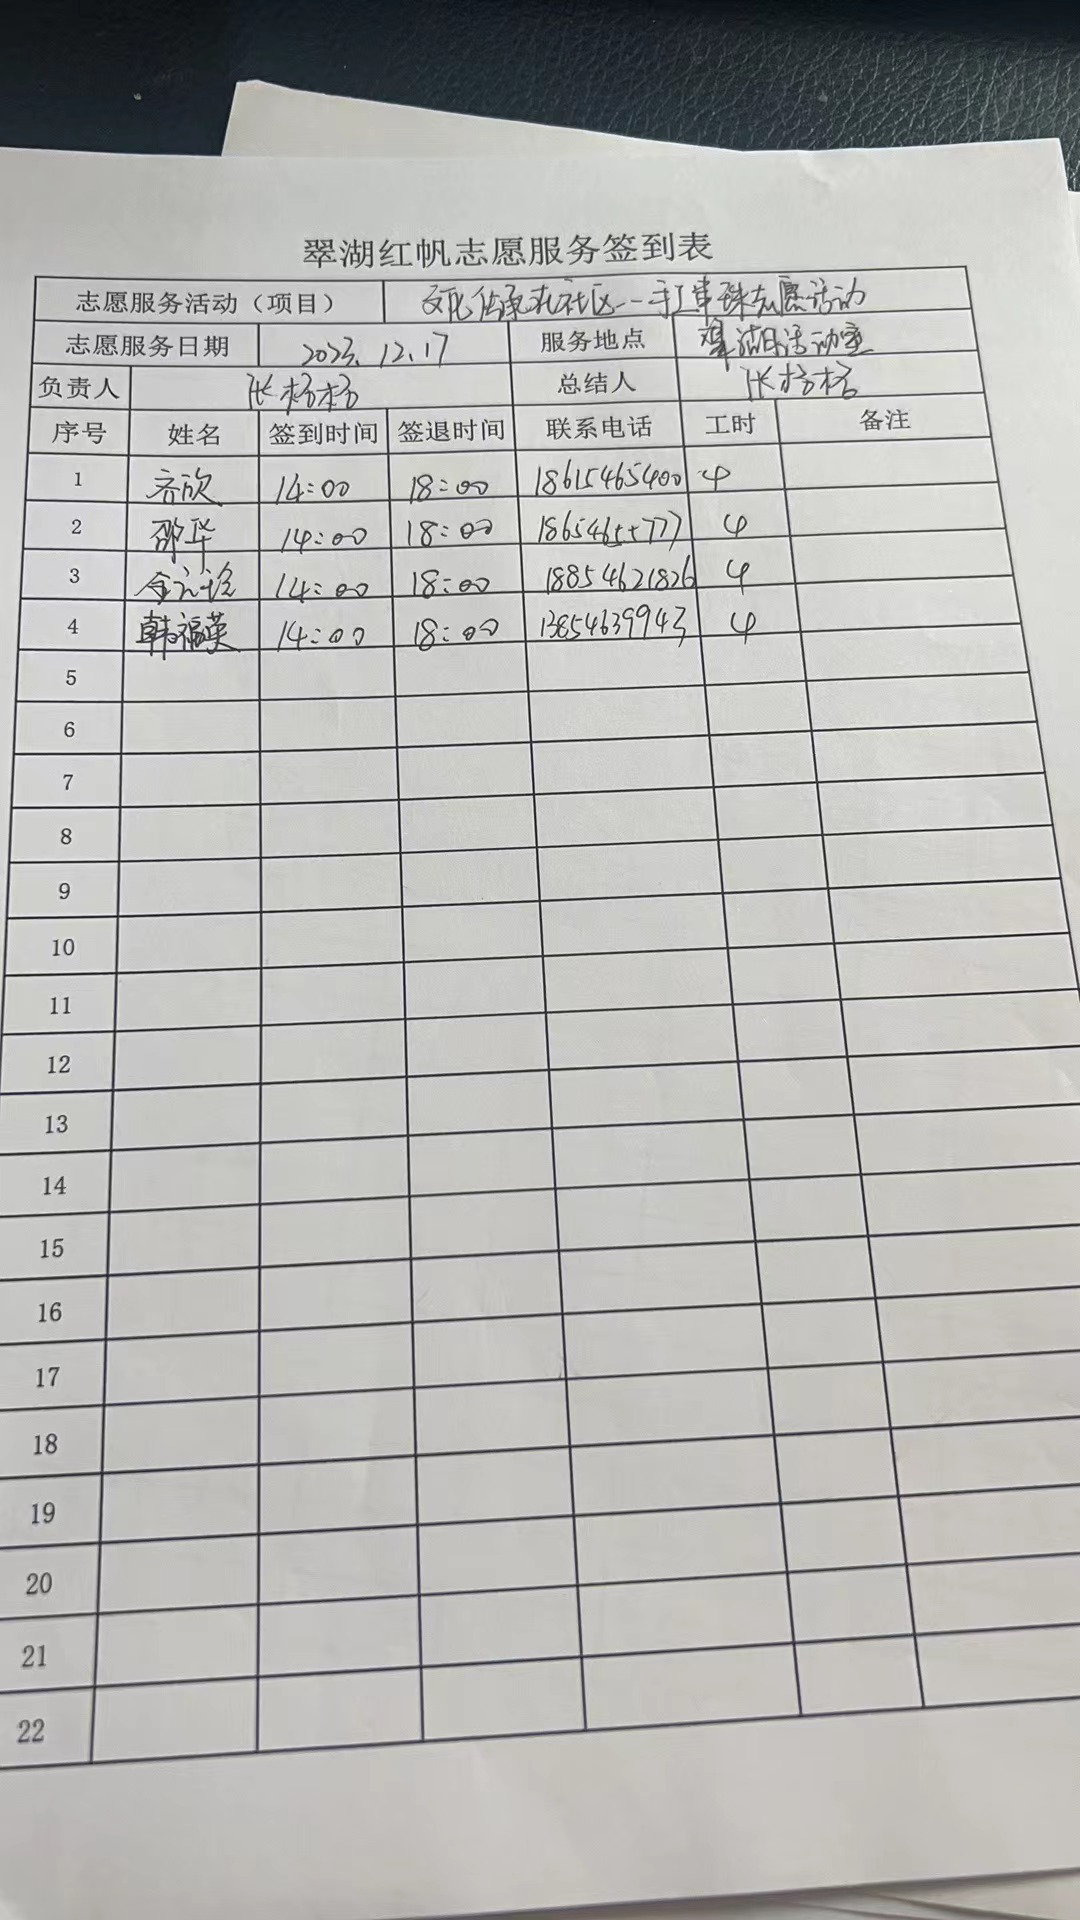 翠湖红帆志愿服务签到表
志愿服务活动（项目） 文化传承在社区--手工串珠志愿活动
志愿服务日期 2023.12.17 服务地点 翠湖活动室
负责人 张杨杨 总结人 张杨杨
序号 姓名 签到时间 签退时间 联系电话 工时 备注
1 齐欣 14:00 18:00 18615465400 4
2 邵华 14:00 18:00 4
3 14:00 18:00 18854621826 4
4 韩福英 14:00 18:00 13854639943 4
5
6
7
8
9
10
11
12
13
14
15
16
17
18
19
20
21
22